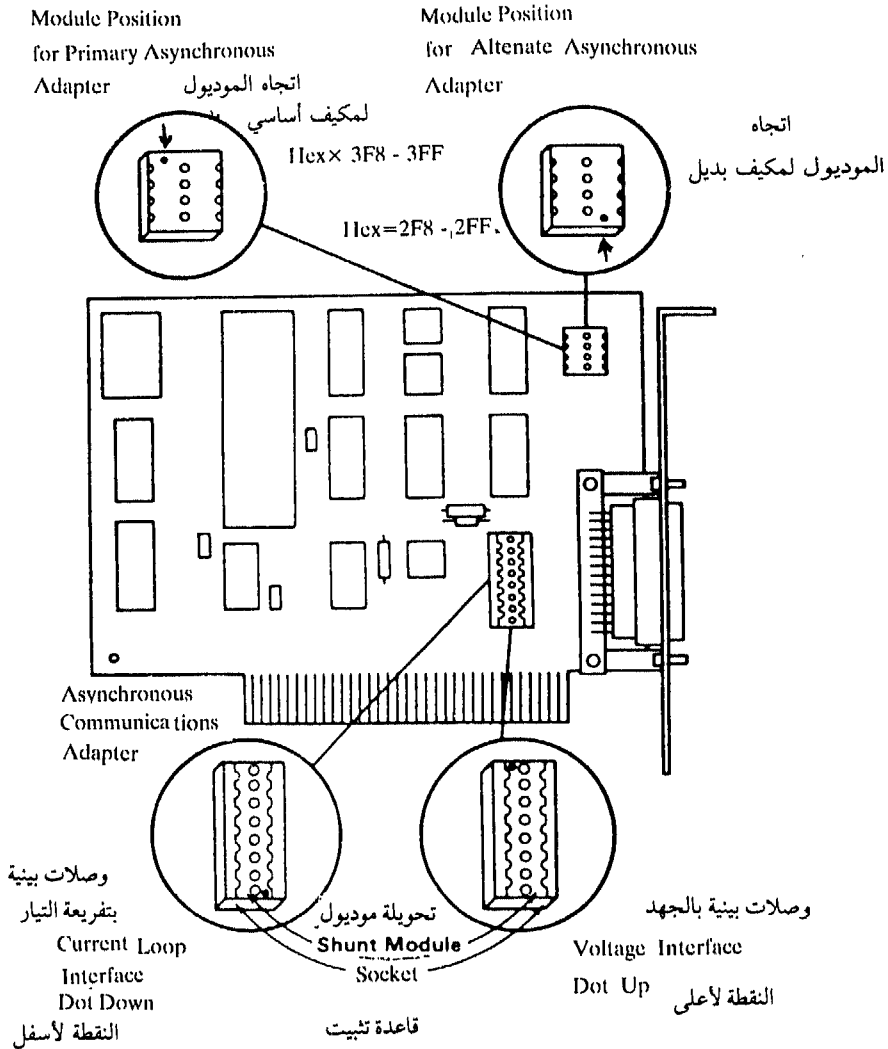 Module Position
for Primary Asynchronous
Adapter
اتجاه الموديول
لمكيف أساسي
Hex× 3F8 - 3FF
Module Position
for Altenate Asynchronous
Adapter
اتجاه
الموديول لمكيف بديل
Hex=2F8 - 2FF
Asynchronous
Communications
Adapter
وصلات بينية
بتفريعة التيار
Current Loop
Interface
Dot Down
النقطة لأسفل
تحويلة موديول
Shunt Module
Socket
قاعدة تثبيت
وصلات بينية بالجهد
Voltage Interface
Dot Up
النقطة لأعلى